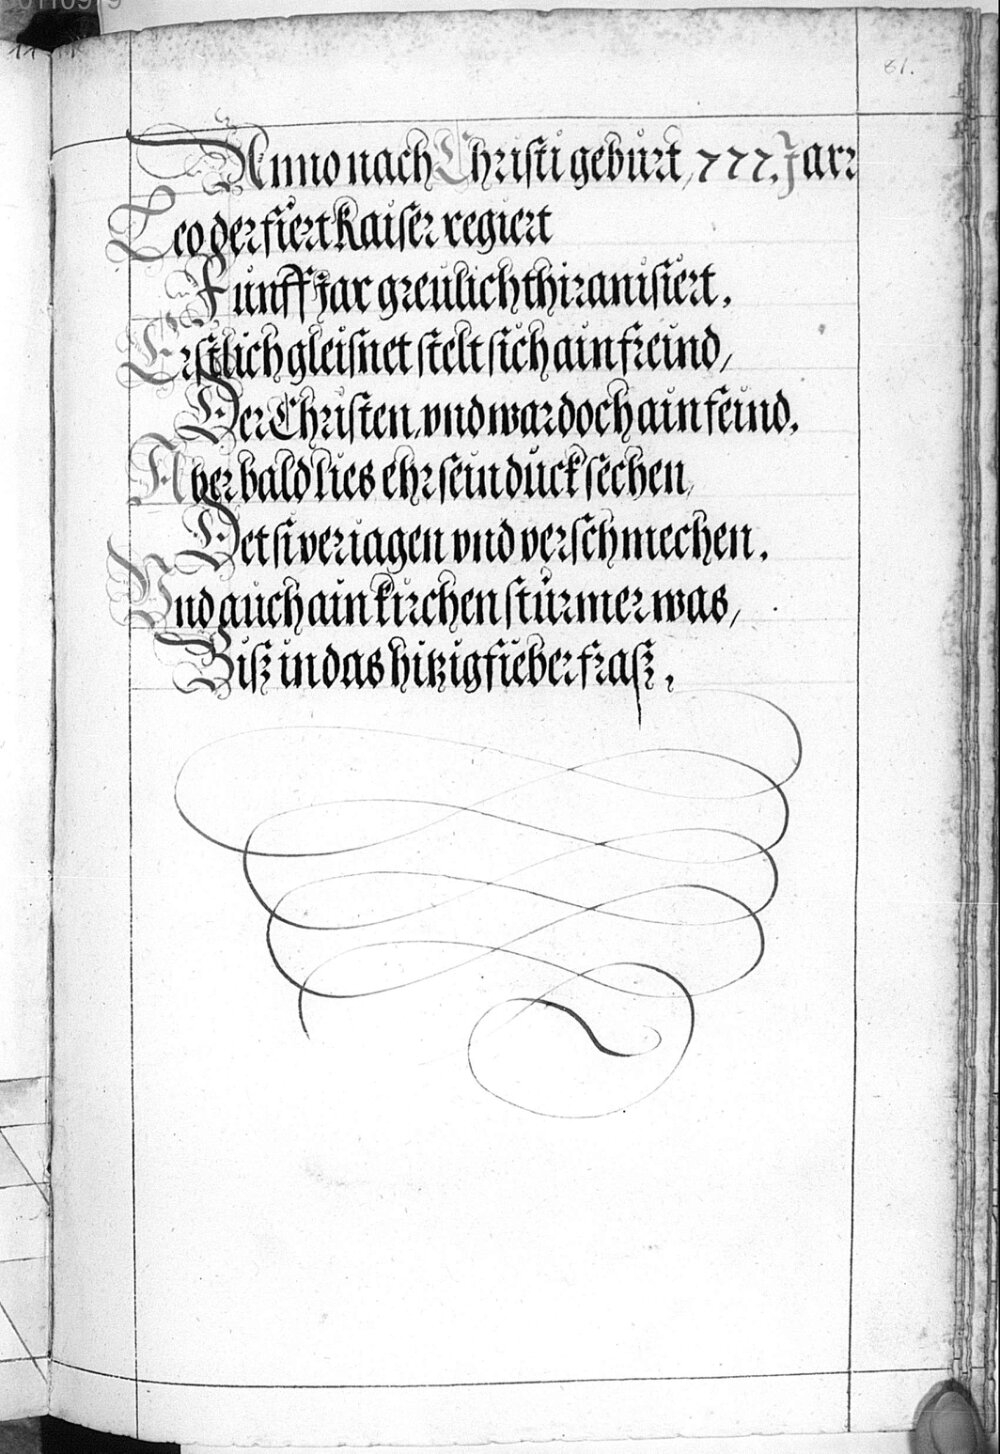 81.
Anno nach Christi geburt, 777. Jarr
Leo der fiert Kaiser regiert
Funff jar greulich thiranisiert.
Erstlich gleisnet stelt sich ain freind,
Der Christen, vnd war doch ain feind.
Aber bald lies ehr sein duck sechen,
Det si veriagen vnd verschmechen.
Vnd auch ain kirchen stürmer was,
Biß in das hitzig fieber fraß.